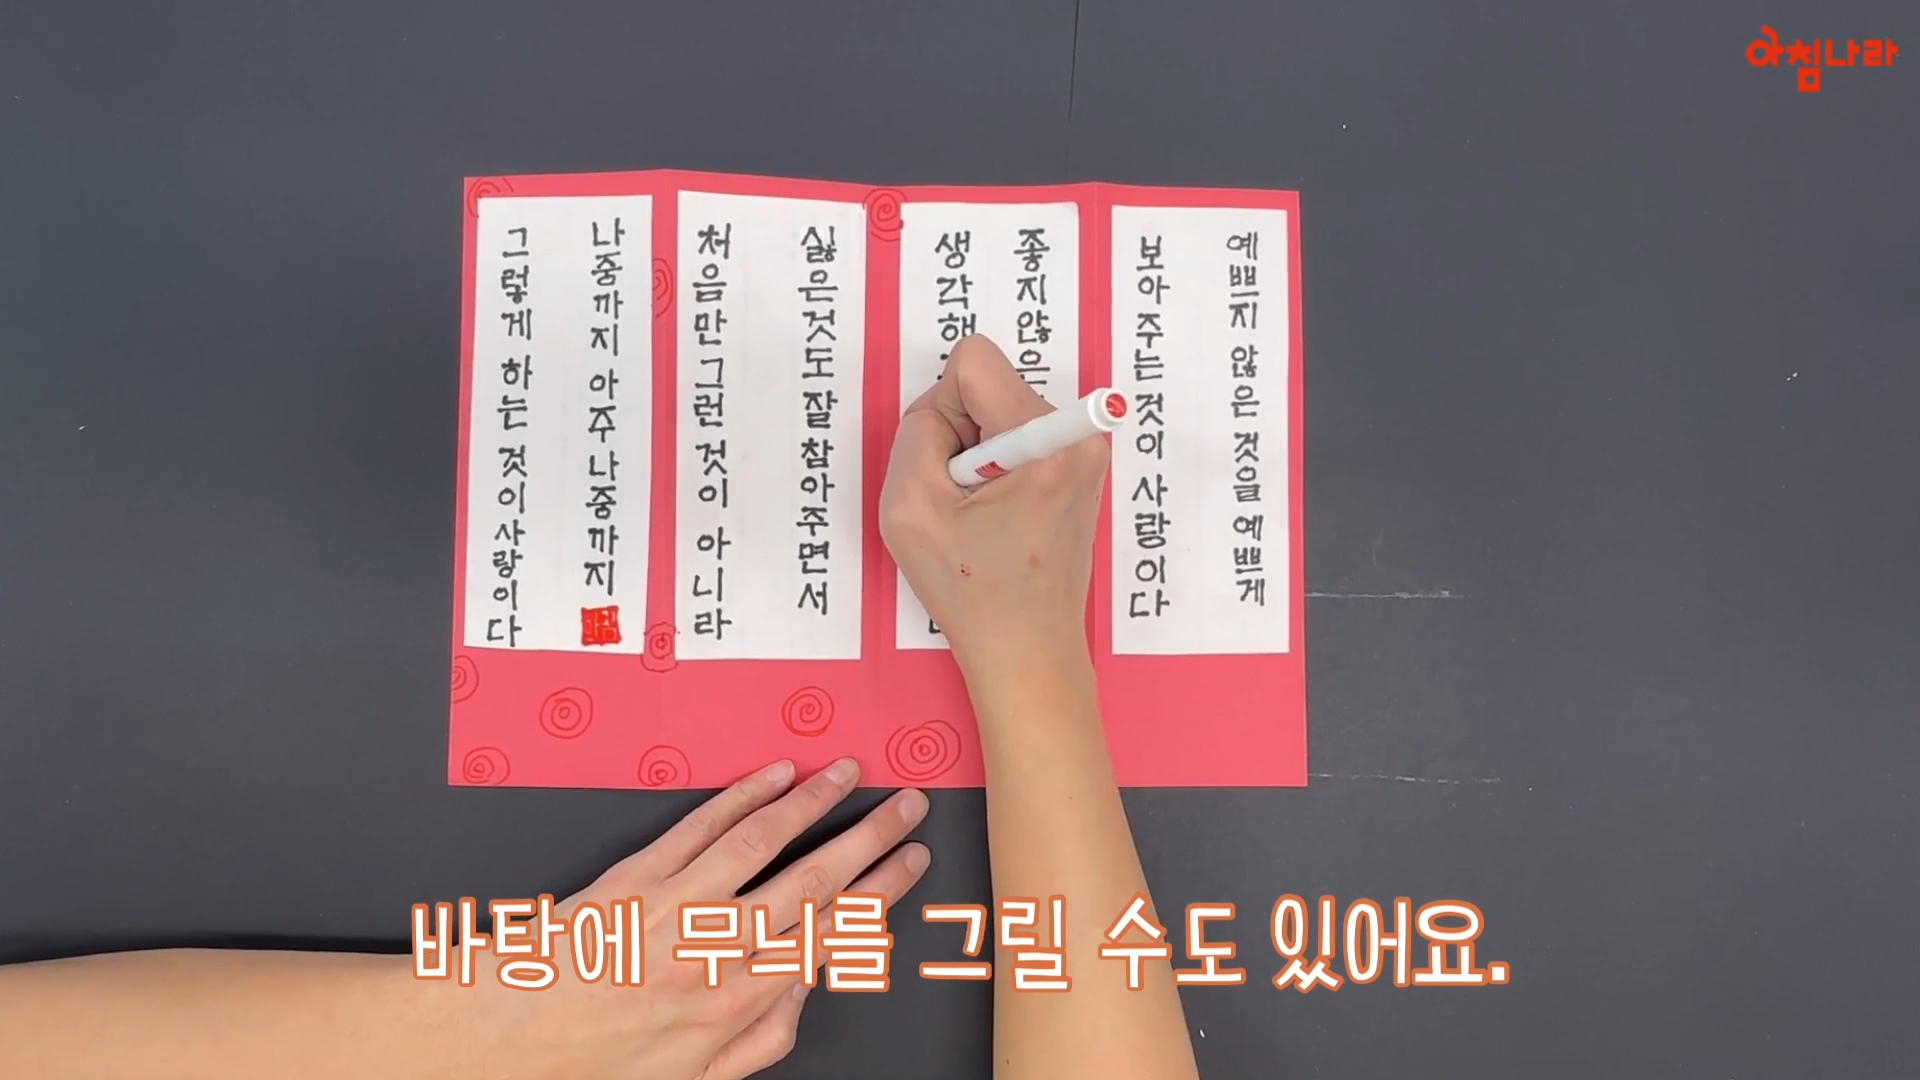 아침나라
예쁘지 않은 것을 예쁘게
보아주는것이 사랑이다
좋지않은
생각해
싫은것도 잘참아주면서
처음만 그런것이 아니라
나중까지 아주나중까지
그렇게 하는 것이사랑이다
바탕에 무늬를 그릴 수도 있어요.